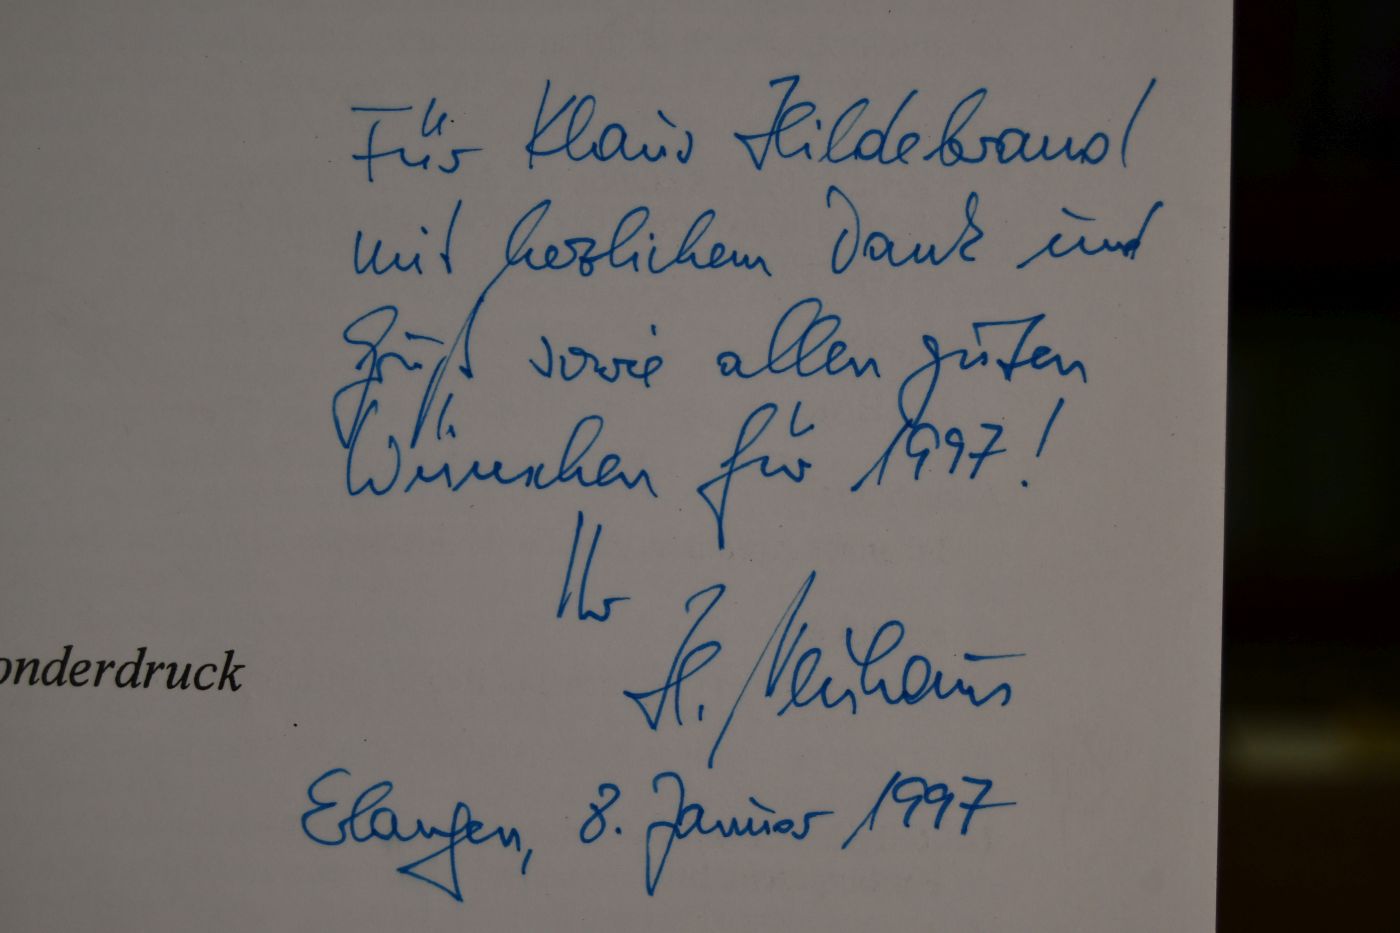 Für Klaus Hildebrand
mit herzlichem Dank und
Gruß sowie allen guten
Wünschen für 1997!
Ihr
H. Neuhaus
onderdruck
Erlangen, 8. Januar 1997